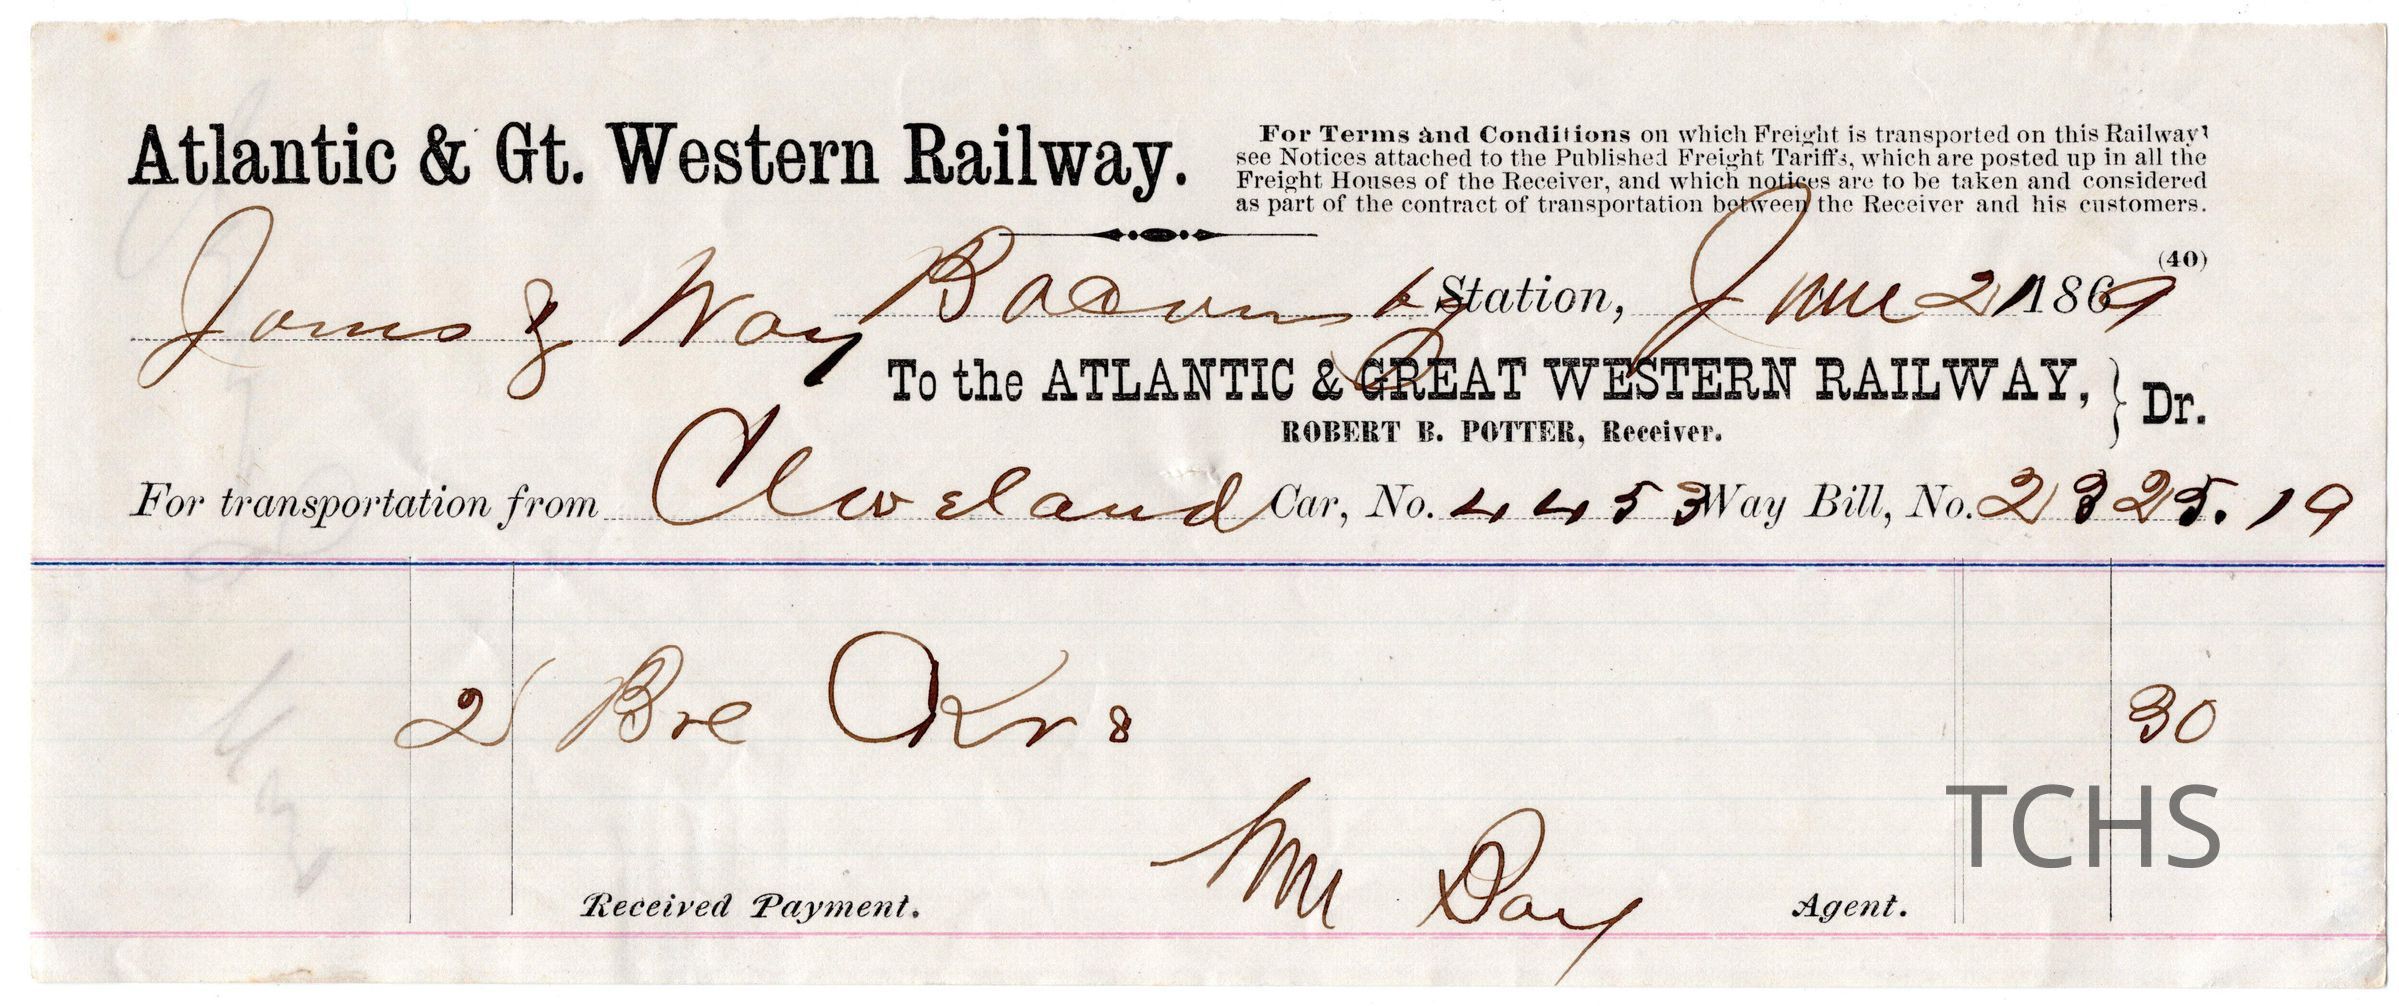 Atlantic & Gt. Western Railway.
For Terms and Conditions on which Freight is transported on this Railway,
see Notices attached to the Published Freight Tariffs, which are posted up in all the
Freight Houses of the Receiver, and which notices are to be taken and considered
as part of the contract of transportation between the Receiver and his customers.
(40)
Station, June 21 1869
Jones & Way
To the ATLANTIC & GREAT WESTERN RAILWAY, } Dr.
ROBERT B. POTTER, Receiver.
For transportation from Cleveland Car, No. 4453 Way Bill, No. 2325.19
2 Bre Krs 30
TCHS
Received Payment. Day Agent.